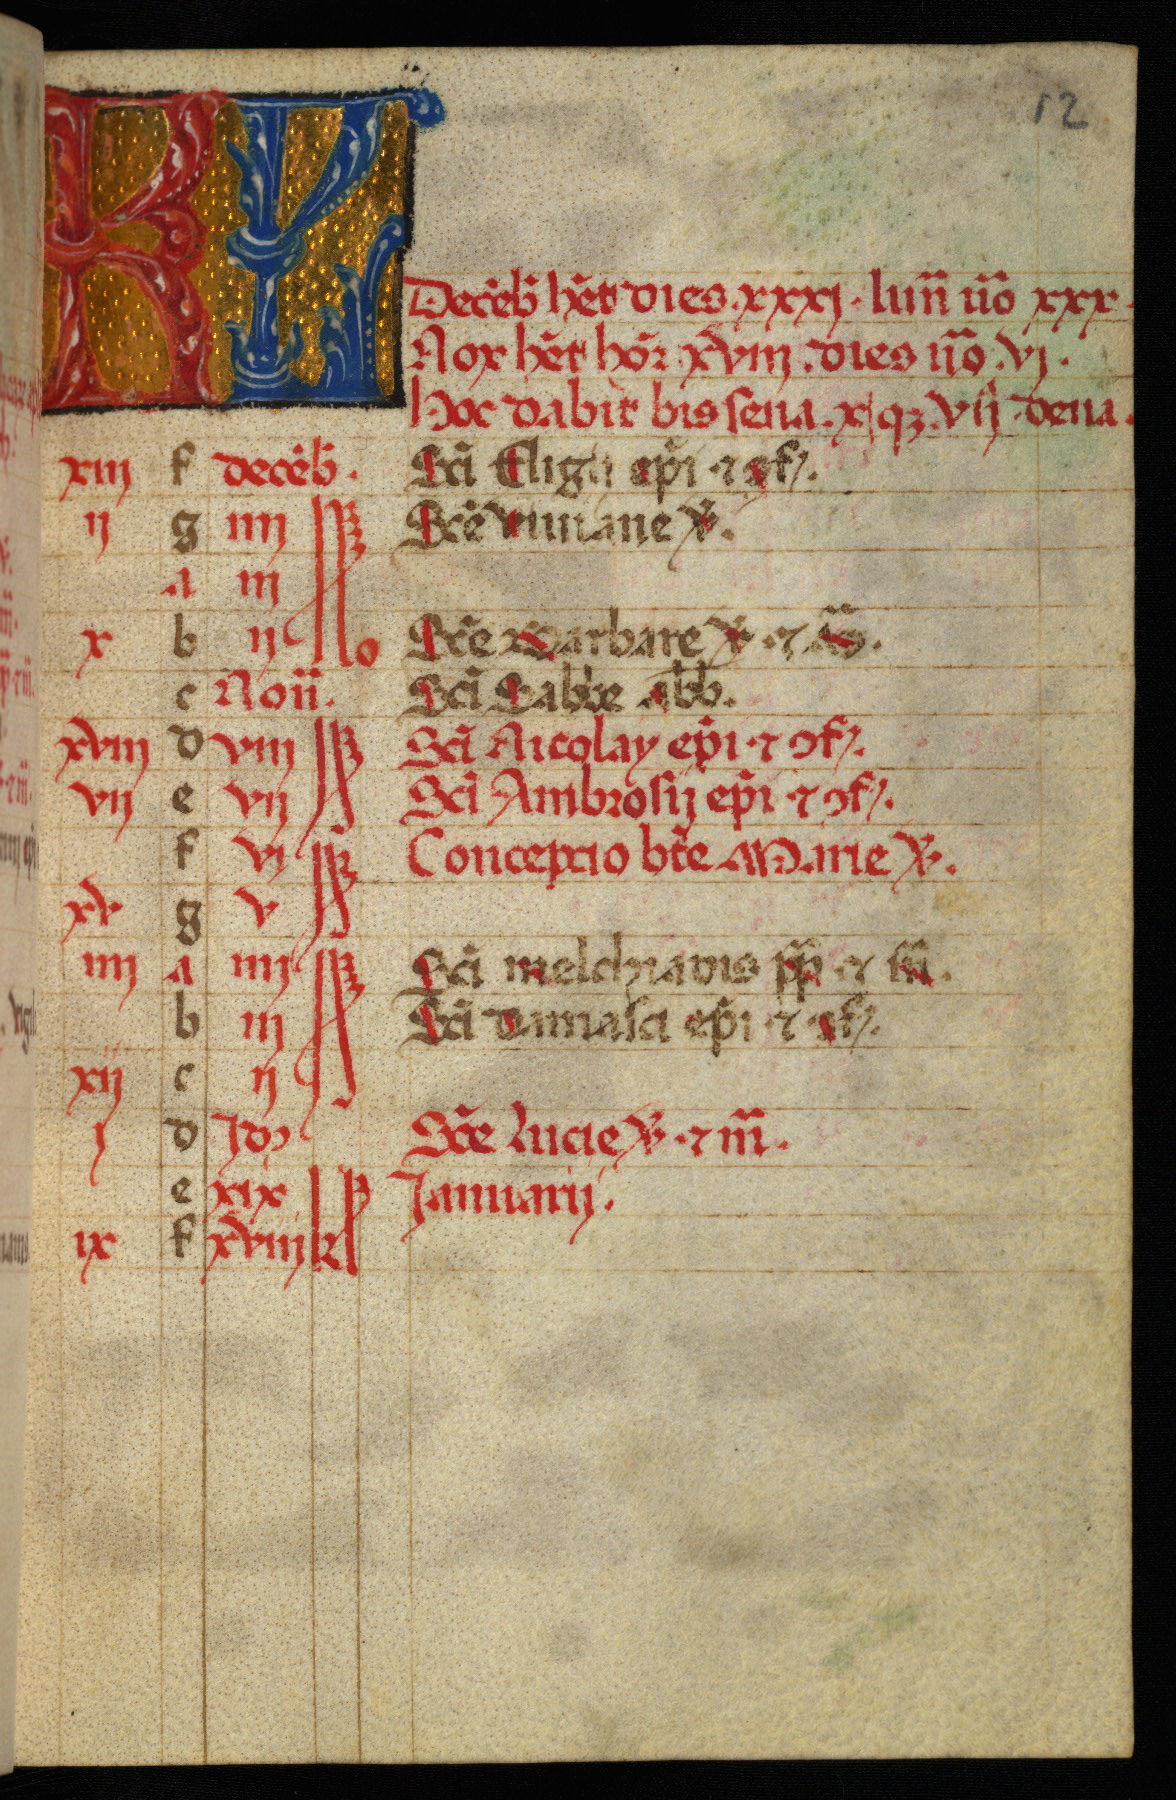 12
KL
Decēb̄ hēt dies .xxxj. lun̄ ūo xxx.
Nox hēt hor̄ .xviij. dies ūo .vj.
Hox dabit bissena. xqꝫ vij dena.
xiij f decēb̄. Scī Eligij ep̄i ⁊ ꝯf.
ij g iiij Scē Viuiane v̄.
a iij
x b ij No Scē Barbare v̄ ⁊ m̄.
c Non̄. Scī Sabbe abb̄.
xviij d viij Scī Nicolay ep̄i ⁊ ꝯf.
vij e vij Scī Ambrosij ep̄i ⁊ ꝯf.
f vj Concepcio btē Marie v̄.
xv g v
iiij a iiij Scī melchiadis pp̄ ⁊ m̄.
b iij Scī damasci ep̄i ⁊ ꝯf.
xij c ij
j d Idꝰ Scē Lucie v̄ ⁊ m̄.
e xix Januarij.
ix f xviij kl